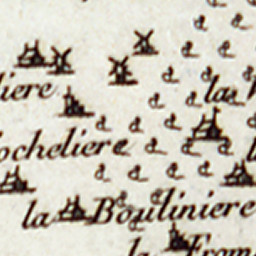 liere
la
ocheliere
la Bouliniere
la From